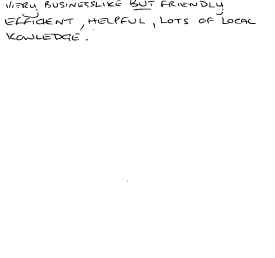 VERY BUSINESSLIKE BUT FRIENDLY
EFFICIENT, HELPFUL, LOTS OF LOCAL
KOWLEDGE.